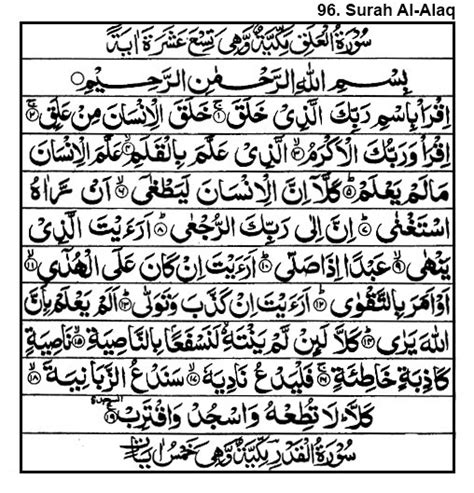 96. Surah Al-Alaq
سُوْرَةُ الْعَلَقِ مَكِّيَّةٌ وَّهِىَ تِسْعَ عَشَرَةَ اٰيَةً
بِسْمِ اللّٰهِ الرَّحْمٰنِ الرَّحِيْمِ
اِقْرَاْ بِاسْمِ رَبِّكَ الَّذِىْ خَلَقَ ۚ‏﴿۱﴾ خَلَقَ الْاِنْسَانَ مِنْ عَلَقٍ ۚ‏﴿۲﴾
اِقْرَاْ وَرَبُّكَ الْاَكْرَمُ ۙ‏﴿۳﴾ الَّذِىْ عَلَّمَ بِالْقَلَمِ ۙ‏﴿۴﴾ عَلَّمَ الْاِنْسَانَ
مَا لَمْ يَعْلَمْ ؕ‏﴿۵﴾ كَلَّاۤ اِنَّ الْاِنْسَانَ لَيَطْغٰٓى ۙ‏﴿۶﴾ اَنْ رَّاٰهُ
اسْتَغْنٰى ؕ‏﴿۷﴾ اِنَّ اِلٰى رَبِّكَ الرُّجْعٰى ؕ‏﴿۸﴾ اَرَءَيْتَ الَّذِىْ
يَنْهٰى ۙ‏﴿۹﴾ عَبْدًا اِذَا صَلّٰى ؕ‏﴿۱۰﴾ اَرَءَيْتَ اِنْ كَانَ عَلَى الْهُدٰٓى ۙ‏﴿۱۱﴾
اَوْ اَمَرَ بِالتَّقْوٰى ؕ‏﴿۱۲﴾ اَرَءَيْتَ اِنْ كَذَّبَ وَتَوَلّٰى ؕ‏﴿۱۳﴾ اَلَمْ يَعْلَمْ بِاَنَّ
اللّٰهَ يَرٰى ؕ‏﴿۱۴﴾ كَلَّا لَئِنْ لَّمْ يَنْتَهِ ۙ لَنَسْفَعًۢا بِالنَّاصِيَةِ ۙ‏﴿۱۵﴾ نَاصِيَةٍ
كَاذِبَةٍ خَاطِئَةٍ ۚ‏﴿۱۶﴾ فَلْيَدْعُ نَادِيَهٗ ۙ‏﴿۱۷﴾ سَنَدْعُ الزَّبَانِيَةَ ۙ‏﴿۱۸﴾
كَلَّا ؕ لَا تُطِعْهُ وَاسْجُدْ وَاقْتَرِبْ ۩‏﴿۱۹﴾ السجدة
سُوْرَةُ الْقَدْرِ مَكِّيَّةٌ وَّهِىَ خَمْسُ اٰيَاتٍ